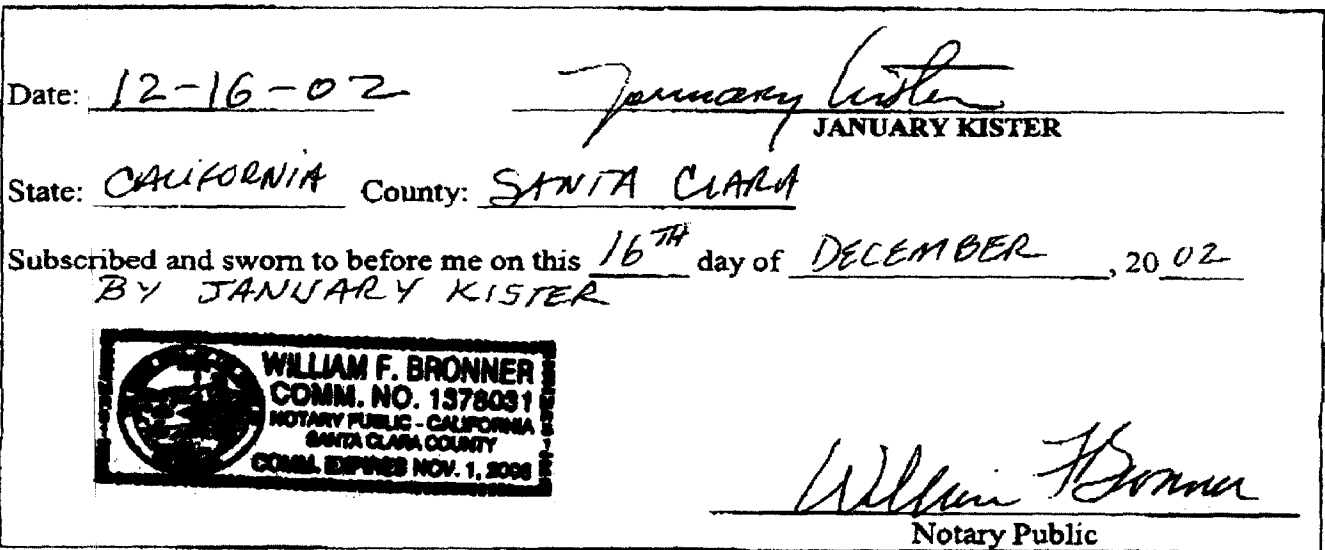 Date: 12-16-02 January Kister
JANUARY KISTER
State: CALIFORNIA County: SANTA CLARA
Subscribed and sworn to before me on this 16TH day of DECEMBER, 20 02
BY JANUARY KISTER
WILLIAM F. BRONNER
COMM. NO. 1378031
NOTARY PUBLIC - CALIFORNIA
SANTA CLARA COUNTY
COMM. EXPIRES NOV. 1, 2006
William F Bronner
Notary Public